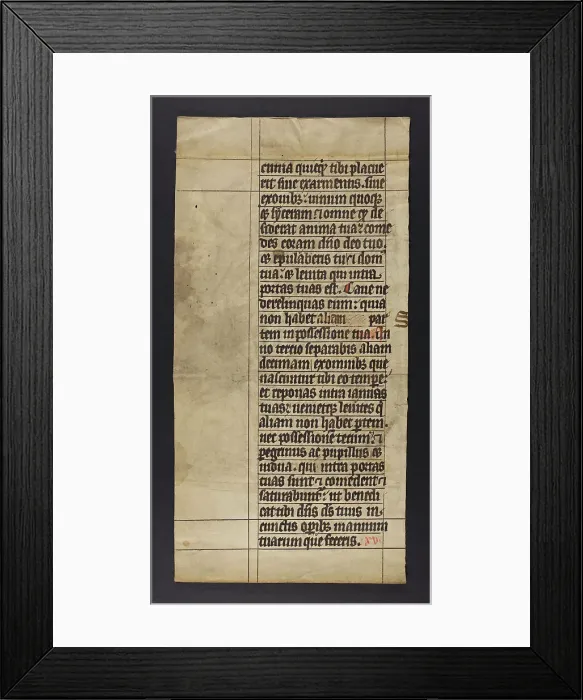 cunia quicq; tibi placue
rit siue ex armentis. siue
ex ouibz: uinum quoq;
& syceram: ⁊ omne qd de
siderat anima tua: come
des coram dño deo tuo.
& epulaberis tu ⁊ dom
tua: & leuita qui intra
portas tuas est. Caue ne
derelinquas eum: quia
non habet aliam par
tem in possessione tua. An
no tertio separabis aliam
decimam ex omnibz que
nascuntur tibi eo tempe:
et repones intra ianuas
tuas: uenietq; leuites q
aliam non habet ptem.
nec possessione tecum: ⁊
pegrinus ac pupillus &
uidua. qui intra portas
tuas sunt ⁊ comedent ⁊
saturabunt: ut benedi
cat tibi dñs ds tuus in
cunctis opibz manuum
tuarum que feceris. XV.